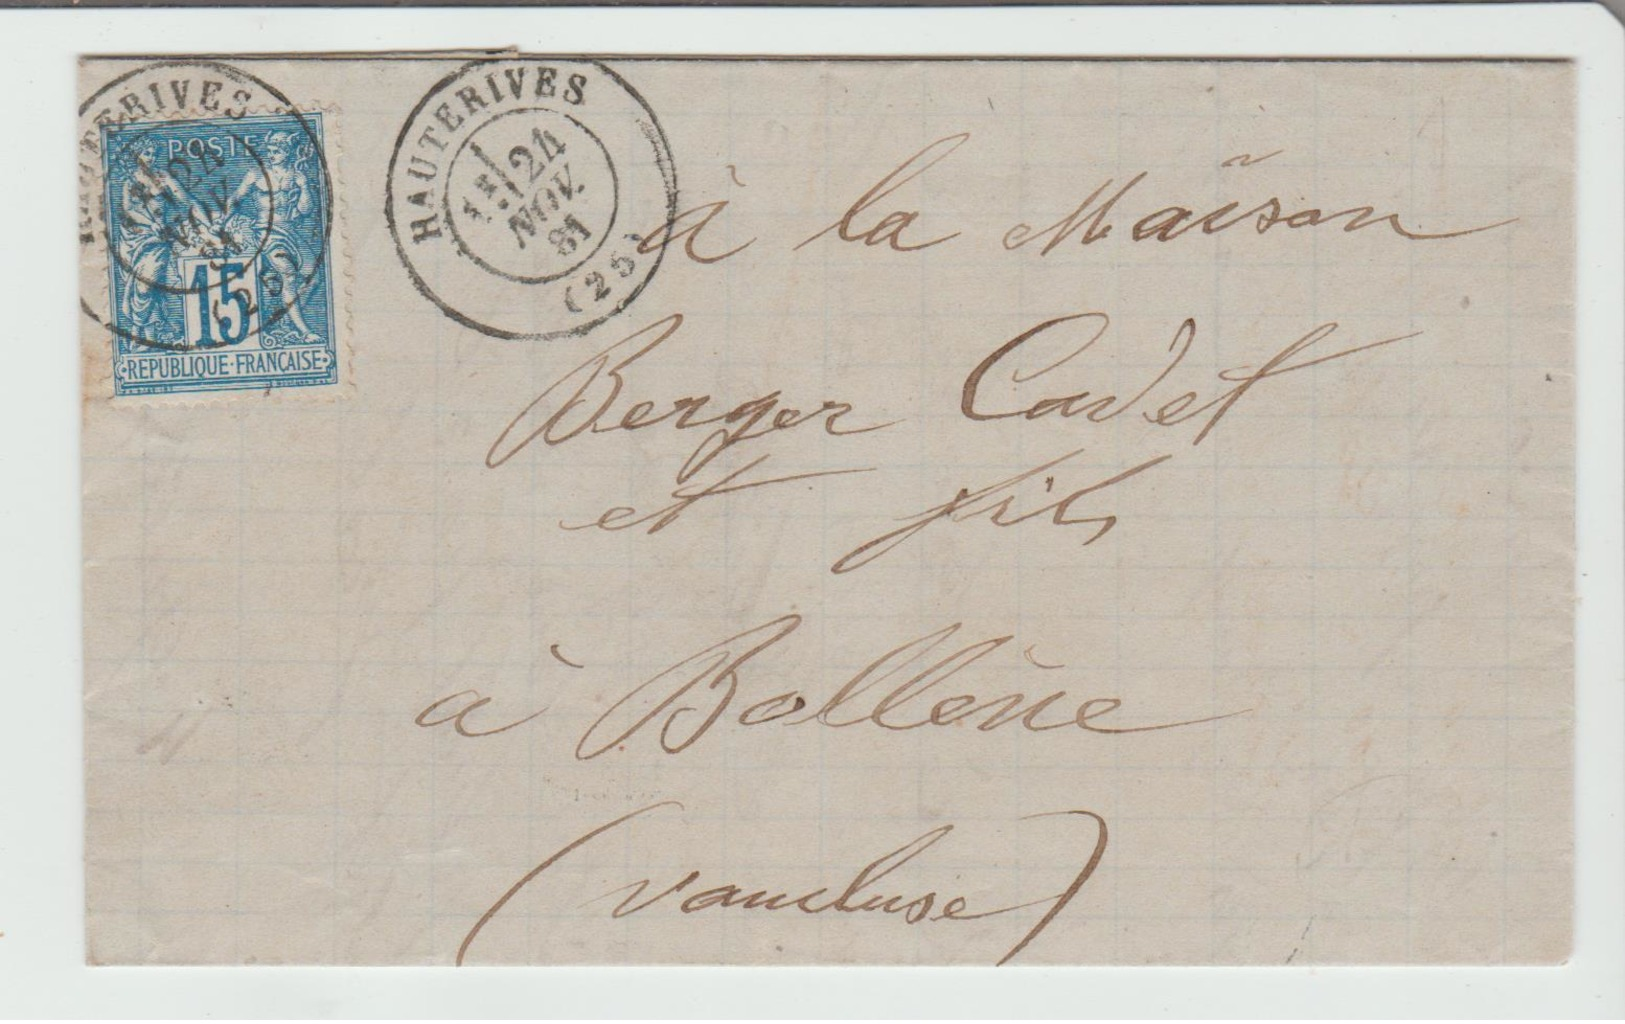 HAUTERIVES
24
NOV.
81
(25)
HAUTERIVES
NOV.
81
(25)
POSTE
15
REPUBLIQUE·FRANÇAISE
à la Maison
Berger Cadet
et fils
à Bollène
(vaucluse)